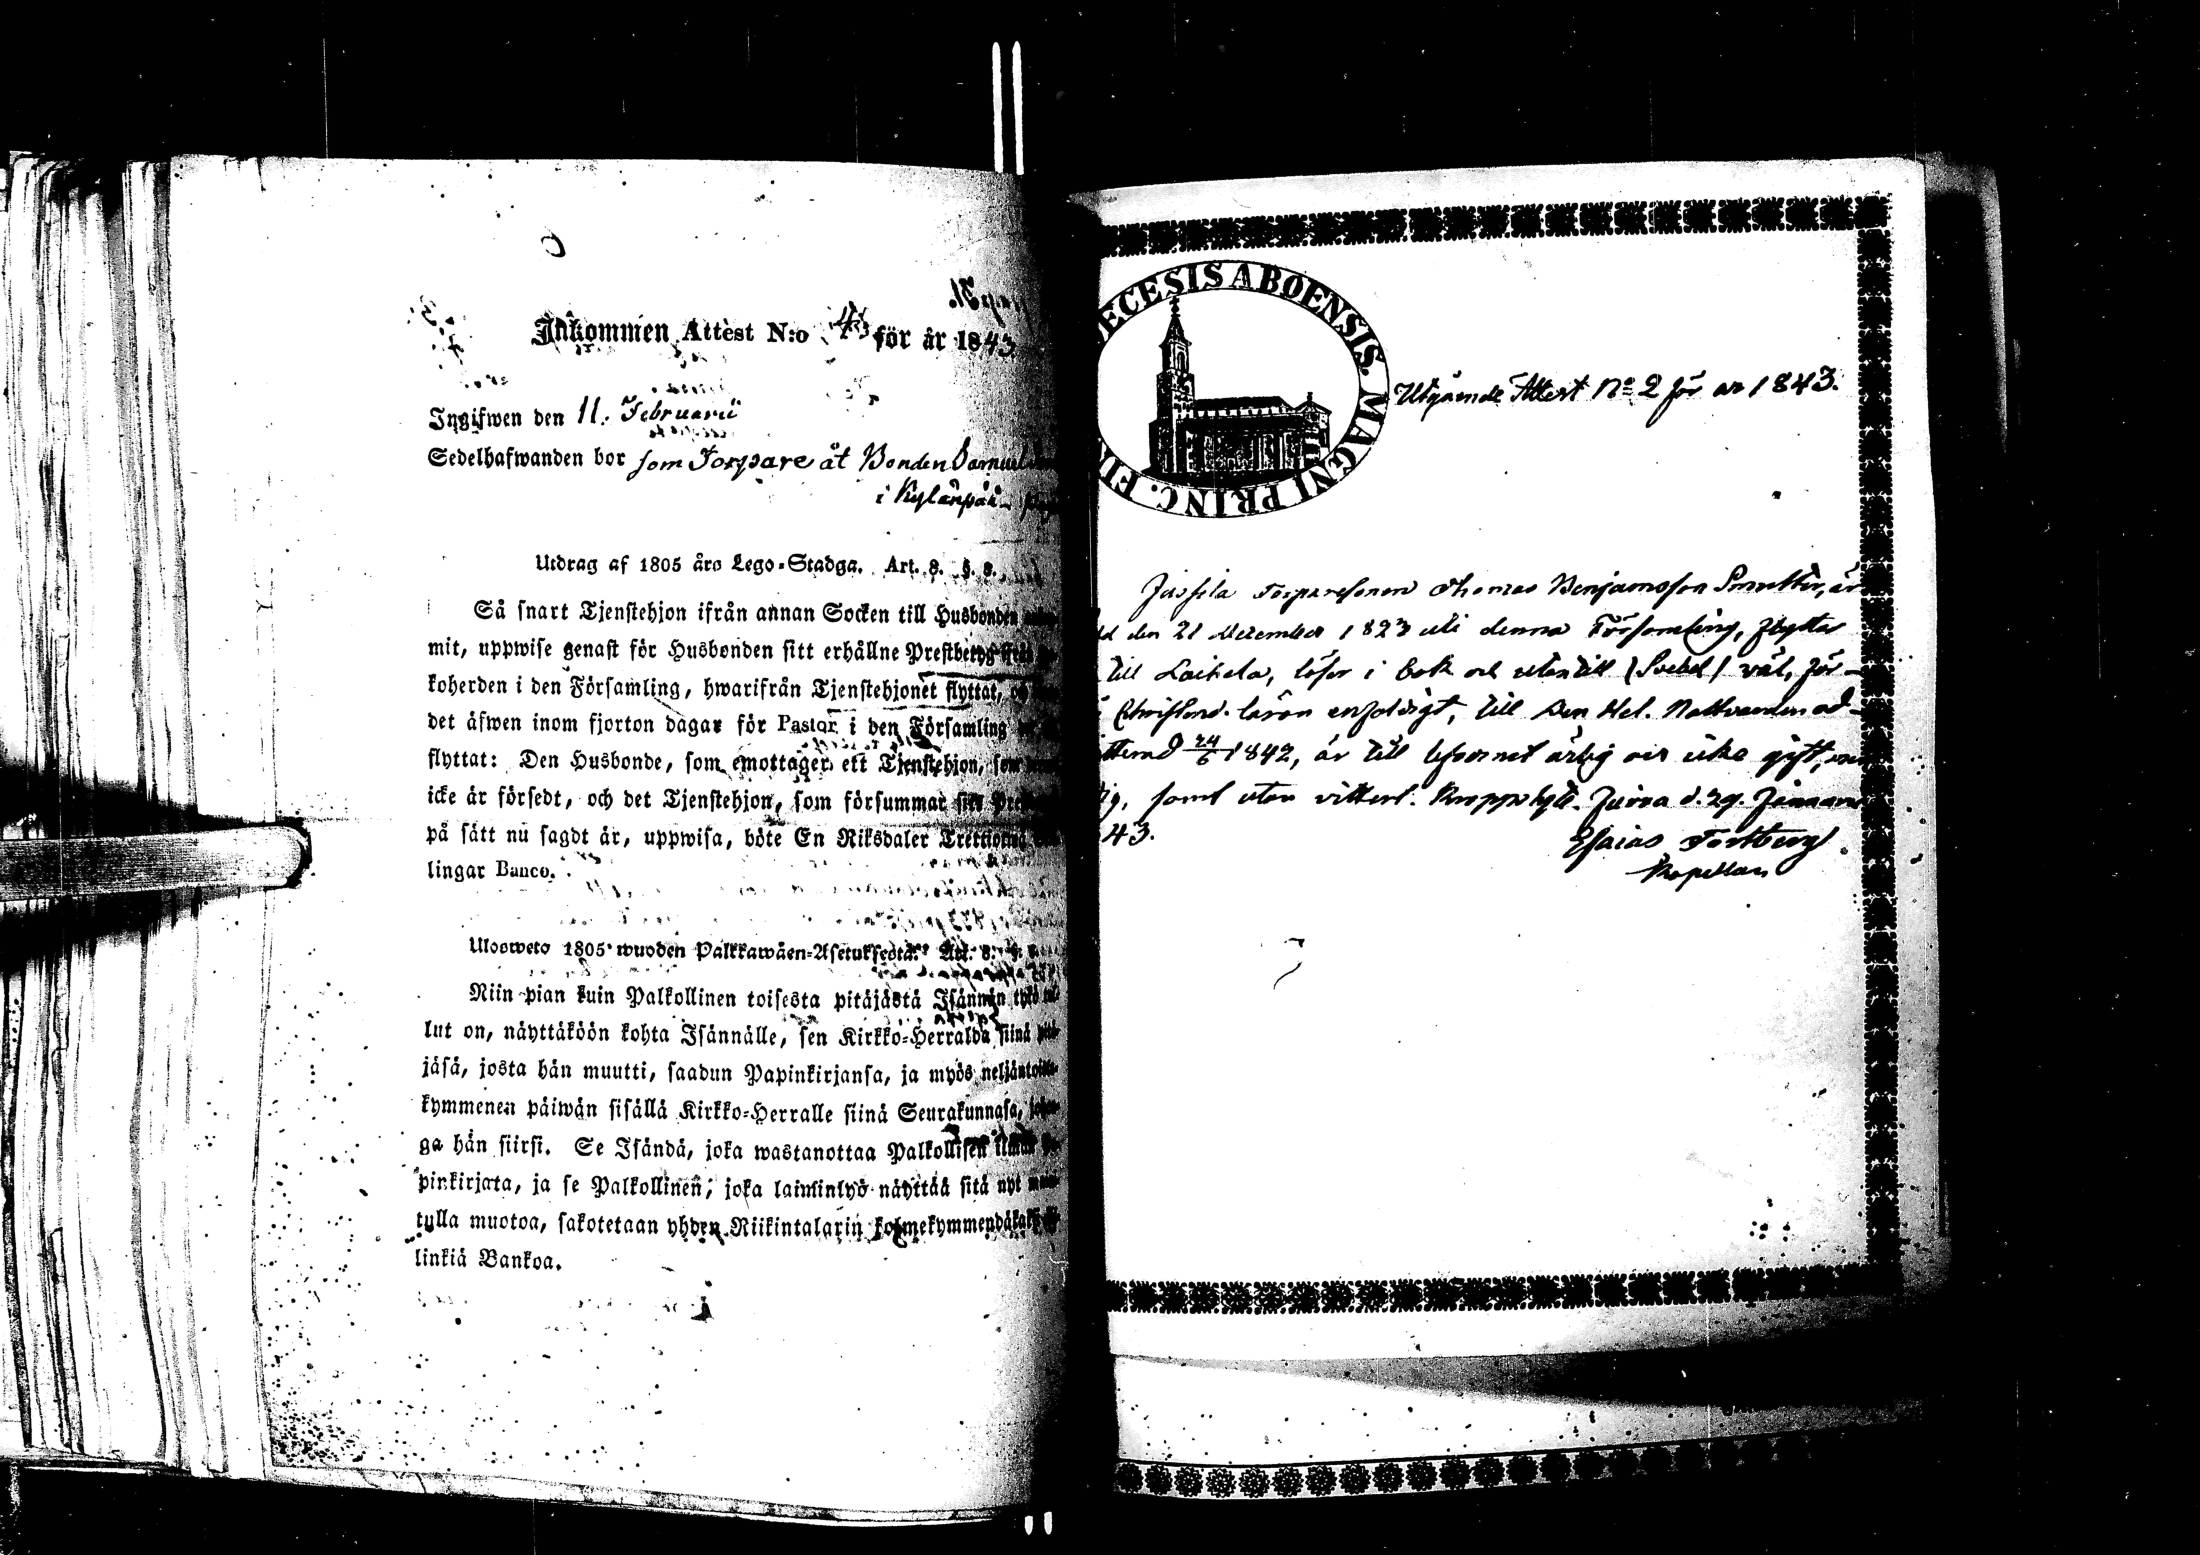 Inkommen Attest N:o 43 för år 1843
Ingifwen den 11. Februarii
Sedelhafwanden bor som Torpare åt Bonden Samuel
i Kylänpää
Utdrag af 1805 års Lego-Stadga. Art. 8. §. 8.
Så snart Tjenstehjon ifrån annan Socken till Husbonden
mit, uppwise genast för Husbonden sitt erhållne Prestbetyg ifrån
koherden i den Församling, hwarifrån Tjenstehjonet flyttat, och
det äfwen inom fjorton dagar för Pastor i den Församling
flyttat: Den Husbonde, som emottager ett Tjenstehjon, som
icke är försedt, och det Tjenstehjon, som försummar sitt
på sätt nu sagdt är, uppwisa, böte En Riksdaler Trettiotvå
lingar Banco.
Ulosweto 1805 wuoden Palkkawäen-Asetuksesta. Art. 8. §.
Niin pian kuin Palkollinen toisesta pitäjästä Isännän työ
lut on, näyttäköön kohta Isännälle, sen Kirkko-Herralda siinä pitä-
jäsä, josta hän muutti, saadun Papinkirjansa, ja myös neljäntoista-
kymmenen päiwän sisällä Kirkko-Herralle siinä Seurakunnasa, johon-
ga hän siirsi. Se Isändä, joka wastanottaa Palkollisen ilman
pinkirjata, ja se Palkollinen, joka laiminlyö näyttää sitä nyt
tulla muotoa, sakotetaan yhden Riikintalarin kolmekymmendäkaksi
linkiä Bankoa.
ECESIS ABOENSIS. MAGNI PRINC. FIN
Utgående Attest No 2 för år 1843.
Jussila Torparesonen Thomas Benjamsson Smutter, är
den 21 December 1823 uti denna Församling, flyttar
till Laihela, läser i bok och utantill (Svebel) väl, för-
Christend. läran enfoldigt, till den Hel. Nattvarden ad-
tterad 24/6 1842, är till lefvernet ärlig och icke gift,
ig, samt utan vitterl. Kroppslyte. Jurva d. 29. Januari
43.
Esaias Fortberg
Kapellan